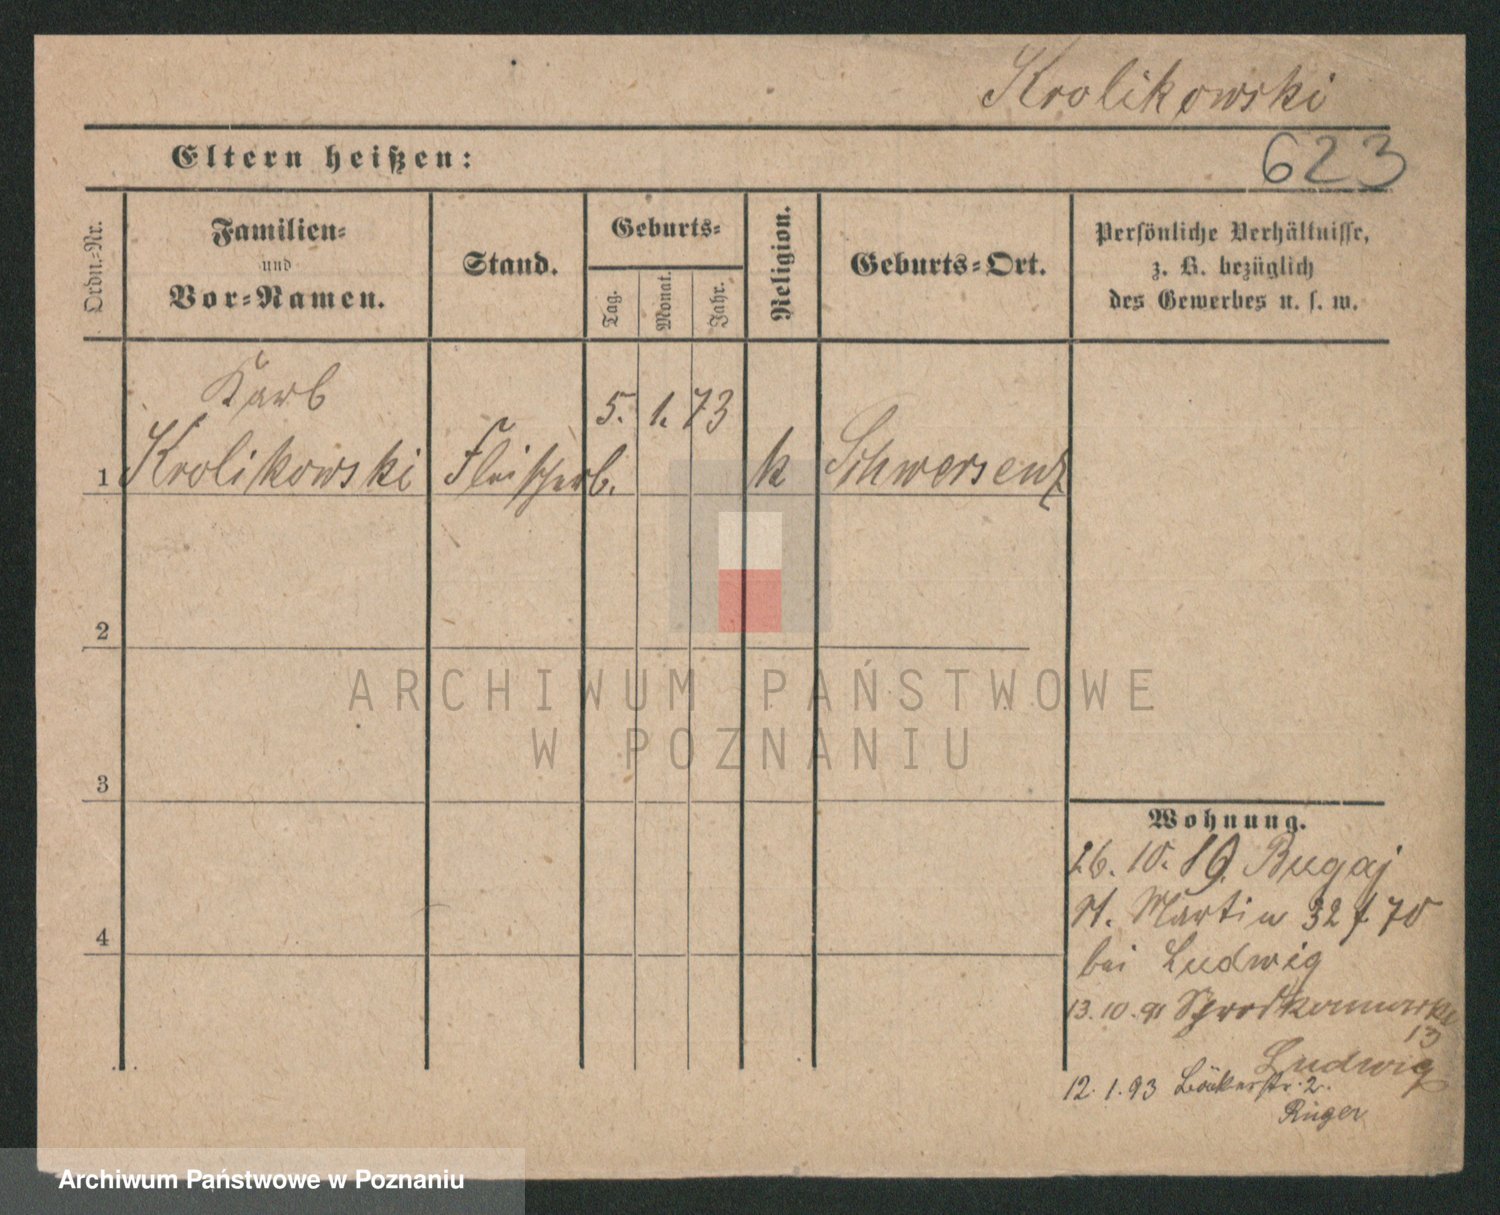 Krolikowski
Eltern heißen:
623
Ordn.-Nr.
Familien-
und
Vor-Namen.
Stand.
Geburts-
Tag.
Monat.
Jahr.
Religion.
Geburts-Ort.
Persönliche Verhältnisse,
z. B. bezüglich
des Gewerbes u. s. w.
Karb
5. 1. 73
1 Krolikowski Fleischerb. k Schwersenz
2
3
4
ARCHIWUM PAŃSTWOWE
W POZNANIU
Wohnung.
26. 10. 89. Bugaj
St. Martin 32 f. 70
bei Ludwig
13. 10. 91
13
Ludwig
12. 1. 93 Bäckerstr. 2.
Rüger
Archiwum Państwowe w Poznaniu